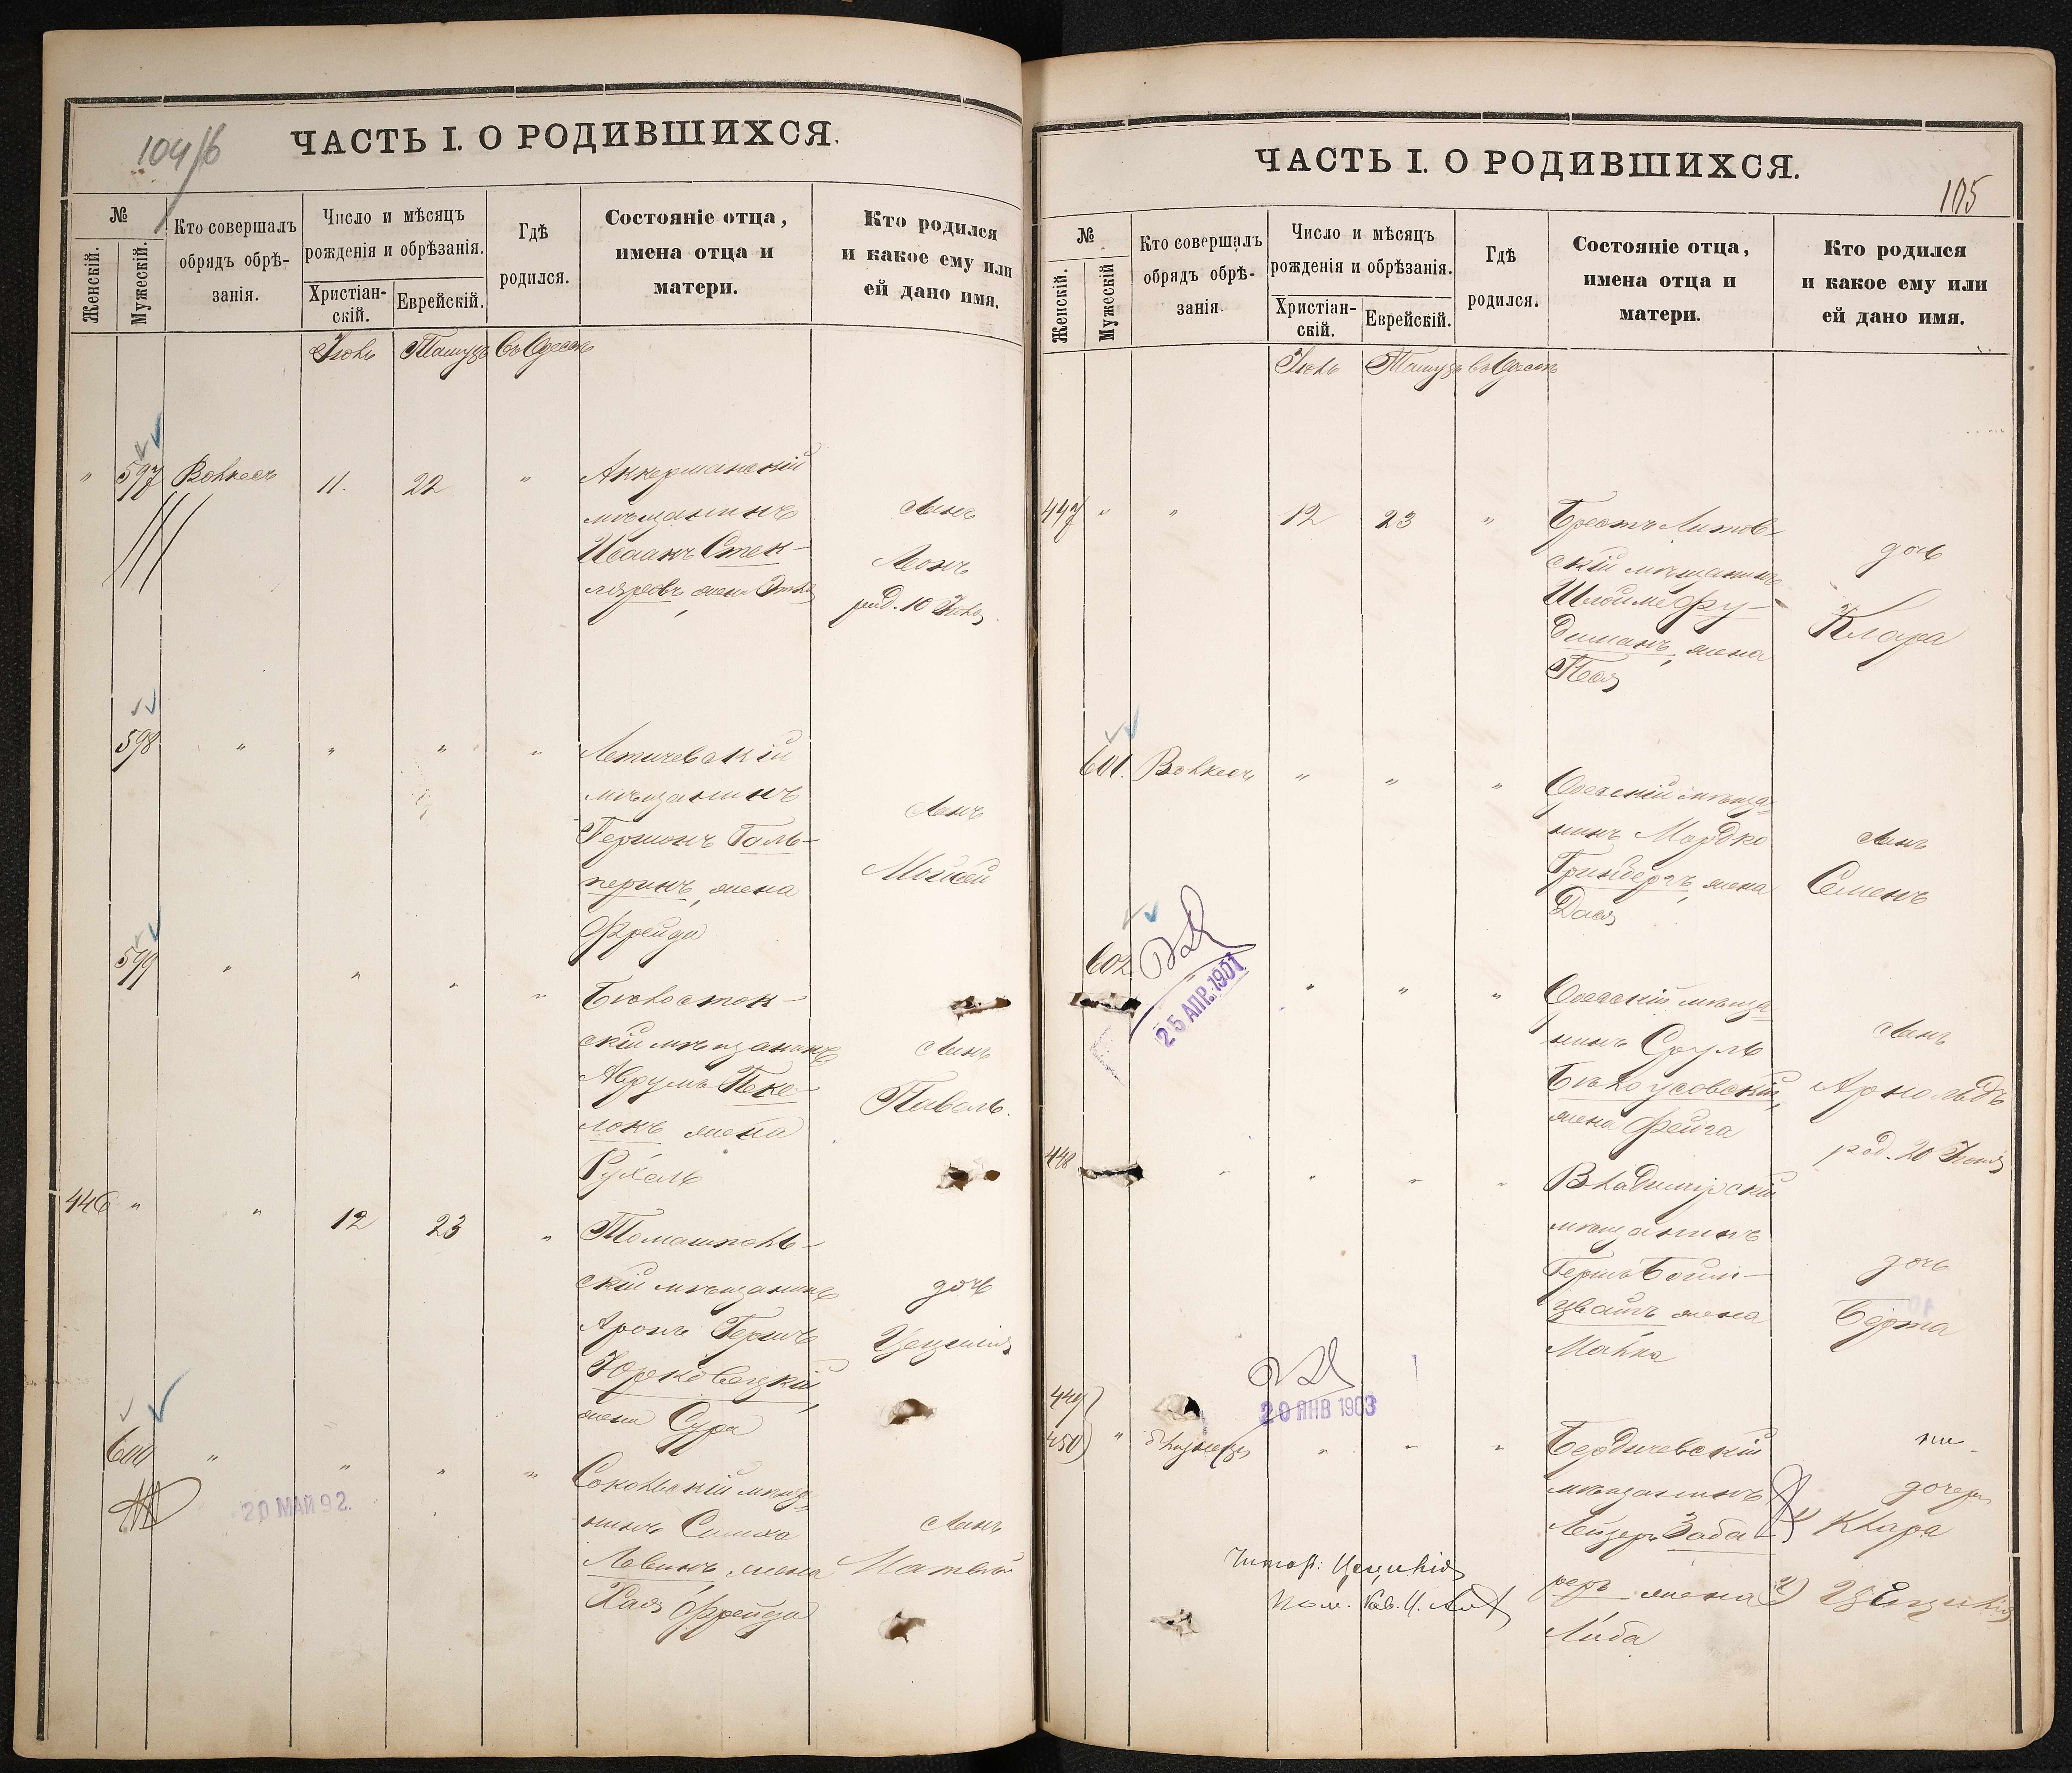 104/б
ЧАСТЬ I. О РОДИВШИХСЯ.
№
Женскій.
Мужескій.
Кто совершалъ
обрядъ обрѣ-
занія.
Число и мѣсяцъ
рожденія и обрѣзанія.
Христіан-
скій.
Еврейскій.
Гдѣ
родился.
Состояніе отца,
имена отца и
матери.
Кто родился
и какое ему или
ей дано имя.
Іюль Тамузъ въ Одессѣ
" 597 Волкесъ 11. 22 " Аккерманскій
мѣщанинъ
Исаакъ Стек-
ляровъ, жена
сынъ
Леонъ
род. 10 Іюля.
598 " " " " Летичевскій
мѣщанинъ
Гершонъ Галь-
перинъ, жена
Фрейда
сынъ
Мойсей
599 " " " " Бѣлосток-
скій мѣщанинъ
Аврумъ Пеке-
локъ жена
Рухель
сынъ
Павелъ.
446 " " 12 23 " Томашполь-
скій мѣщанинъ
Аронъ Гершъ
Юрковецкій,
жена Сура
дочь
Цецилія
600 " " " " Сокольскій мѣща-
нинъ Симха
Левинъ, жена
Хая Фрейда
сынъ
Матвей
20 МАЙ 92.
ЧАСТЬ I. О РОДИВШИХСЯ.
105
№
Женскій.
Мужескій
Кто совершалъ
обрядъ обрѣ-
занія.
Число и мѣсяцъ
рожденія и обрѣзанія.
Христіан-
скій.
Еврейскій.
Гдѣ
родился.
Состояніе отца,
имена отца и
матери.
Кто родился
и какое ему или
ей дано имя.
Іюль Тамузъ въ Одессѣ
447 " " 12 23 " Брестъ Литов-
скій мѣщанинъ
Шлойме Фру-
диманъ, жена
Песя
дочь
Клара
601. Волкесъ " " " Одесскій мѣща-
нинъ Мордко
Гринбергъ, жена
Дася
сынъ
Семенъ
602
25 АПР. 1901
" " " Одесскій мѣща-
нинъ Сруль
Бѣлоусовскій,
жена Фейга
сынъ
Арнольдъ
род. 20 Іюня
448 " " " " Владимірскій
мѣщанинъ
Гершъ Бойм-
цвайгъ жена
Малка
дочь
Берта
20 ЯНВ 1903
449)
450) " близнецы " " " Бердичевскій
мѣщанинъ
Лейзеръ Заба
реръ жена
Либа
дочери
1) Клара
2) Цецилія
Читай: Цецилія